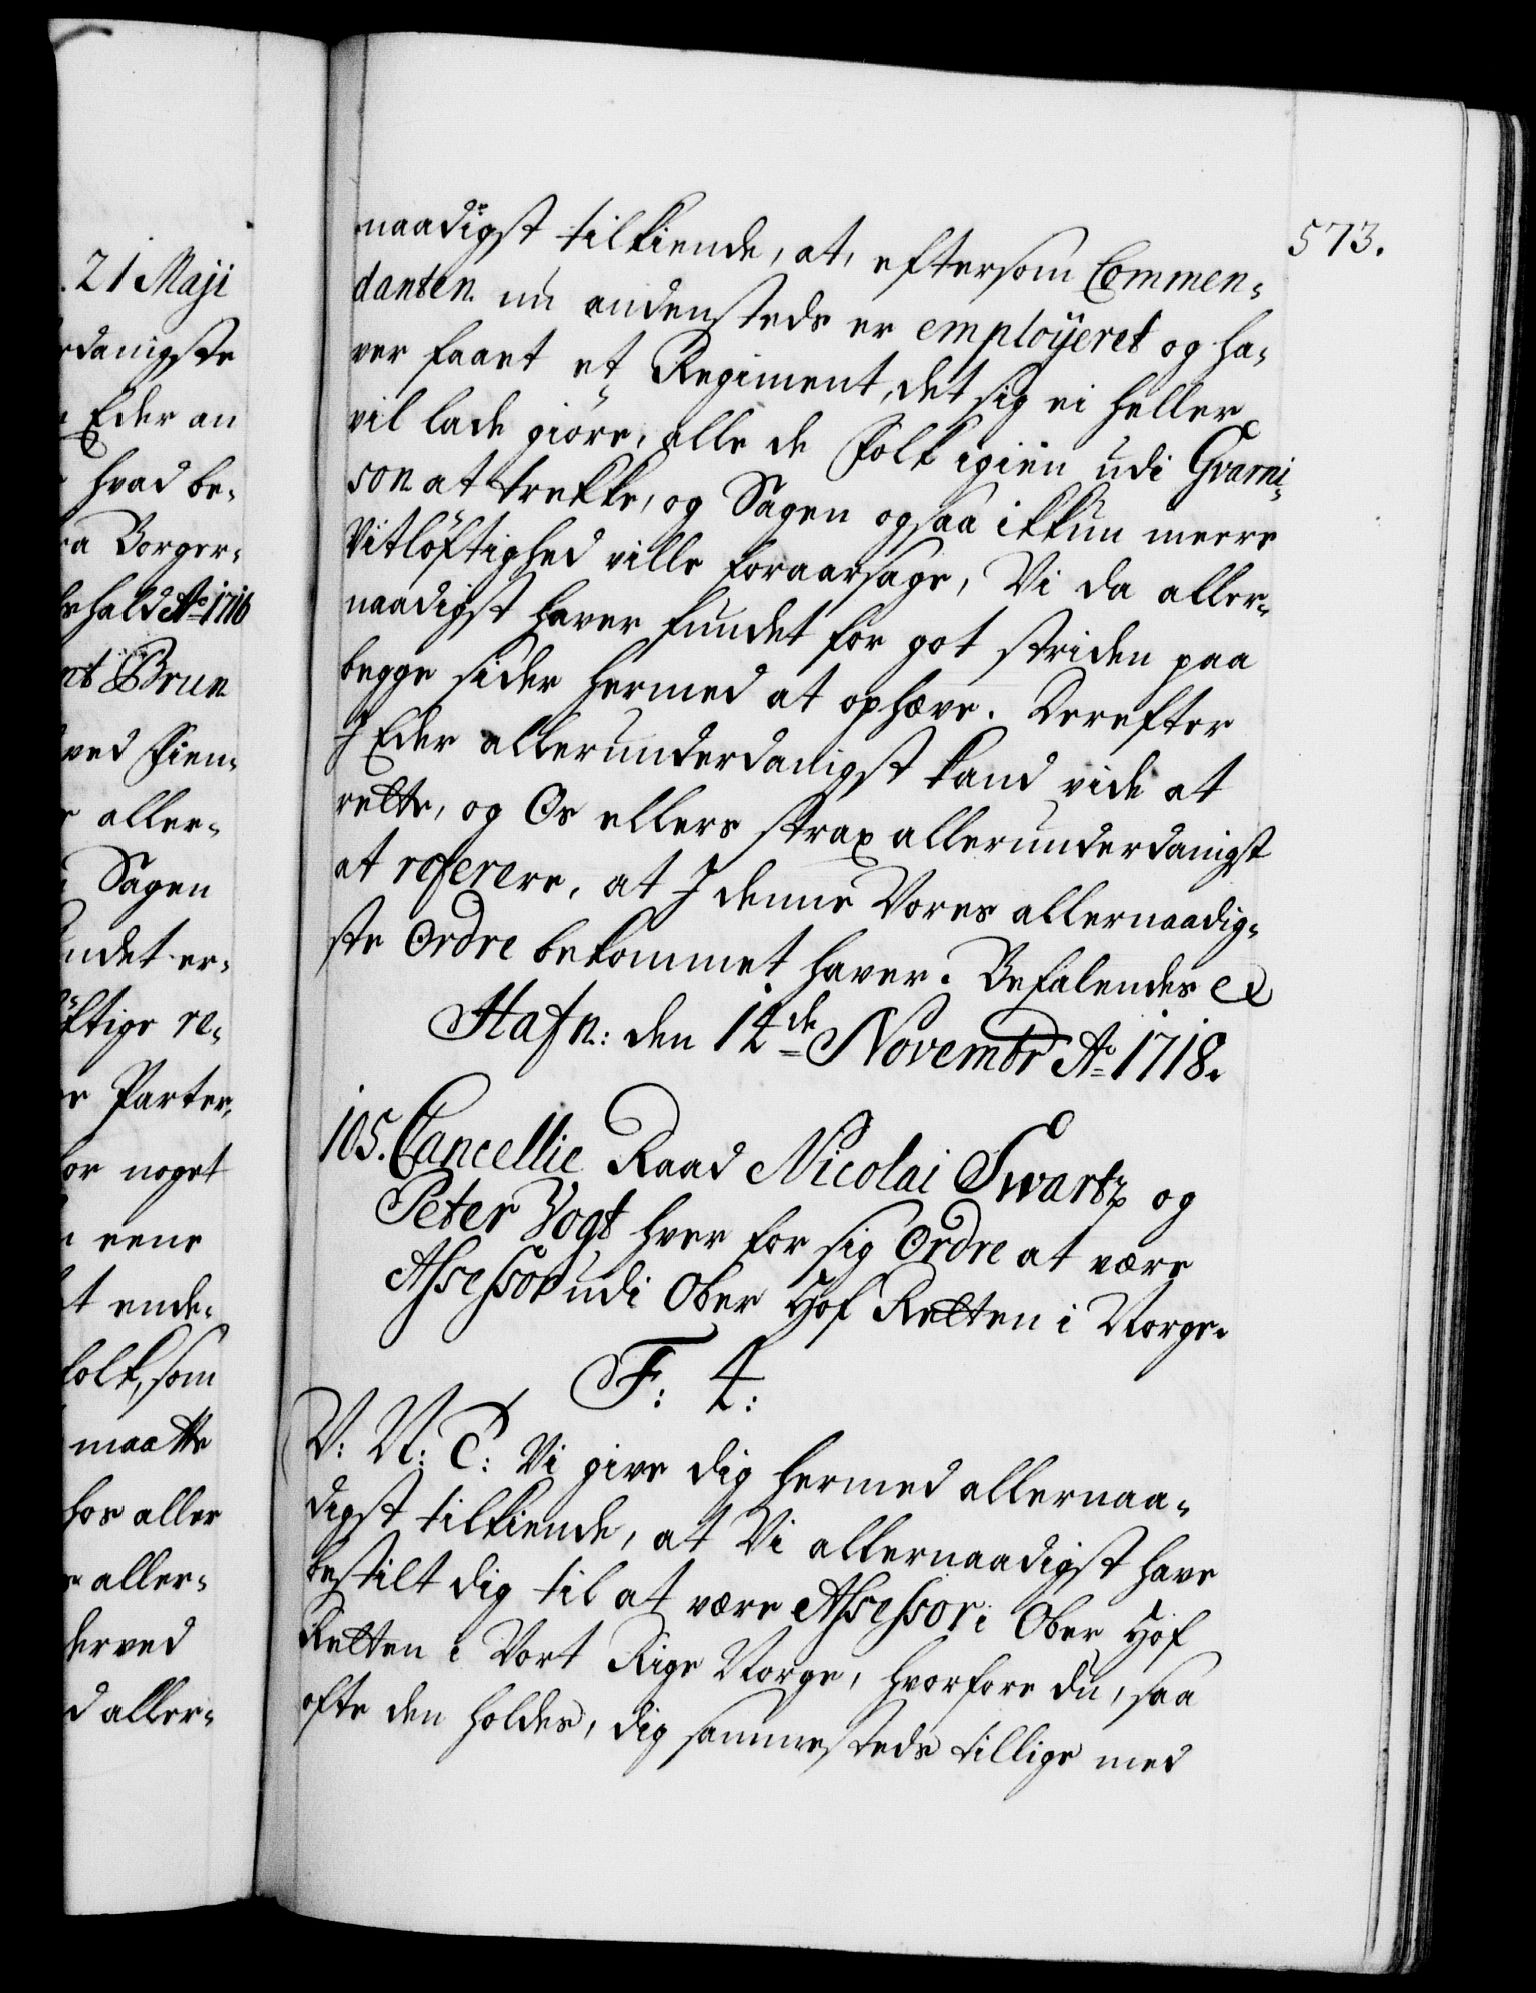 . 21 Maji
rdanigste
Eder an
hvad be-
ra Borger-
hehald A.o 1716
nt Brun
ved Fien-
aller-
Sagen
ndet er-
öftige re-
Parter,
for noget
eene
t ende-
folk, som
maatte
hos aller
aller-
derved
d aller-
573.
naadigst tilkiende, at, eftersom Commen-
danten nu andensteds er employeret og ha-
ver faaet et Regiment, det sig ei heller
vil lade giöre, alle de Folk igien udi Gvarni-
son at trekke, og Sagen ogsaa ikkun meere
Vitlöftighed ville foraarsage, Vi da aller-
naadigst haver fundet for got striden paa
begge sider hermed at ophæve. Derefter
I Eder allerunderdanigst kand vide at
rette, og Os ellers strax allerunderdanigst
at referere, at I denne Vores allernaadig-
ste Ordre bekommet haver. Befalendes etc
Hafn: den 14de Novembr A.o 1718.
105. Cancellie Raad Nicolai Swartz og
Peter Vogt hver for sig Ordre at være
Assessor udi Ober Hof Retten i Norge.
F: 4:
V: N: T: Vi give dig hermed allernaa-
digst tilkiende, at Vi allernaadigst have
bestilt dig til at være Assessor i Ober Hof
Retten i Vort Rige Norge, hvorfore du, saa
ofte den holdes, dig sammesteds tillige med